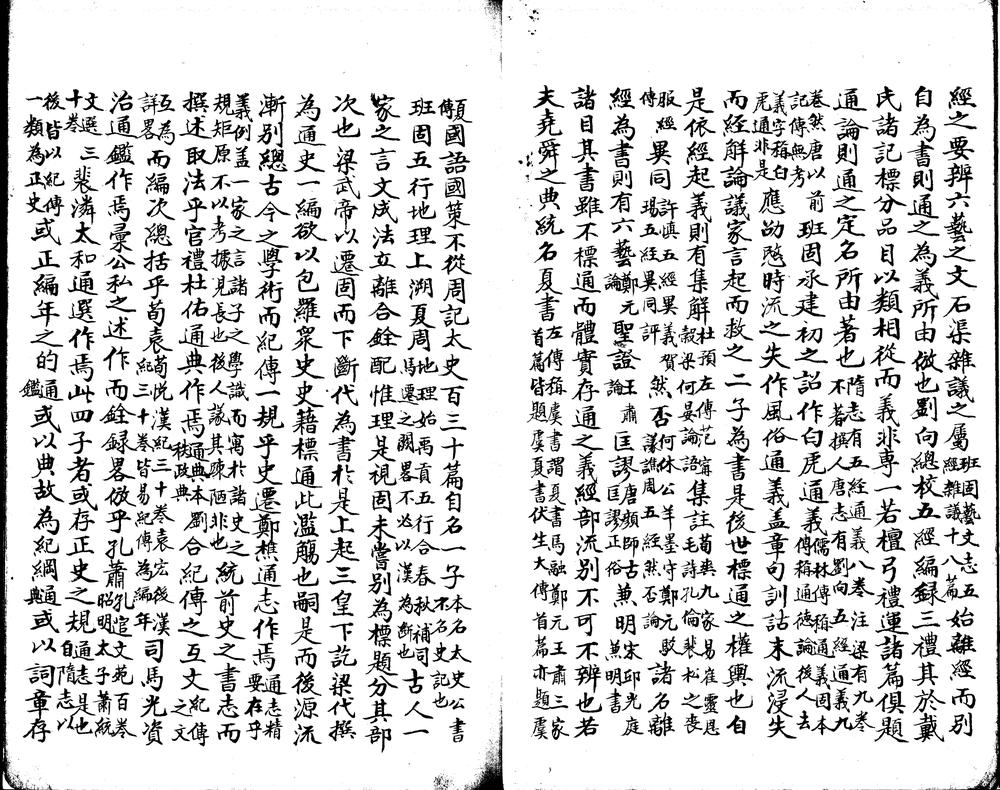 經之要辨六藝之文石渠雜議之屬班固藝文志五經雜議十八篇始離經而別
自為書則通之為義所由倣也劉向總校五經編録三禮其於戴
氏諸記標分品目以類相從而義非專一若檀弓禮運諸篇俱題
通論則通之定名所由著也隋志有五經通義八卷注梁有九卷不著撰人唐志有劉向五經通義九
卷然唐以前記傳無考班固承建初之詔作白虎通義儒林傳稱通義固本傳稱通德論後人去
義字稱白虎通非是應劭愍時流之失作風俗通義盖章句訓詁末流浸失
而經解論議家言起而救之二子為書是後世標通之權輿也自
是依經起義則有集解杜預左傳范甯穀梁何晏論語集註荀爽九家易崔靈恩毛詩孔倫裴松之喪
服經傳異同許慎五經異義賀瑒五經異同評然否何休公羊墨守鄭元駮議譙周五經然否論諸名離
經為書則有六藝鄭元論聖證王肅論匡謬唐顏師古匡謬正俗兼明宋邱光庭兼明書
諸目其書雖不標通而體實存通之義經部流別不可不辨也若
夫堯舜之典統名夏書左傳稱虞書謂夏書馬融鄭元王肅三家首篇皆題虞夏書伏生大傳首篇亦題虞
夏傳國語國策不從周記太史百三十篇自名一子本名太史公書不名史記也
班固五行地理上溯夏周地理始禹貢五行合春秋補司馬遷之闕畧不必以漢為斷也古人一
家之言文成法立離合銓配惟理是視固未嘗別為標題分其部
次也梁武帝以遷固而下斷代為書於是上起三皇下訖梁代撰
為通史一編欲以包羅衆史史籍標通此濫觴也嗣是而後源流
漸別總古今之學術而紀傳一規乎史遷鄭樵通志作焉通志精要在乎
義例盖一家之言諸子之學識而寓於諸史之規矩原不以考據見長也後人議其疎陋非也統前史之書志而
撰述取法乎官禮杜佑通典作焉通典本劉秩政典合紀傳之互文紀傳之文
互為詳畧而編次總括乎荀袁荀悅漢紀三十卷袁宏後漢紀三十卷皆易紀傳為編年司馬光資
治通鑑作焉彙公私之述作而銓録畧倣乎孔蕭孔逭文苑百卷昭明太子蕭統
文選三十卷裴潾太和通選作焉此四子者或存正史之規通志是也自隋志以
後皆以紀傳一類為正史或正編年之的通鑑或以典故為紀綱通典或以詞章存